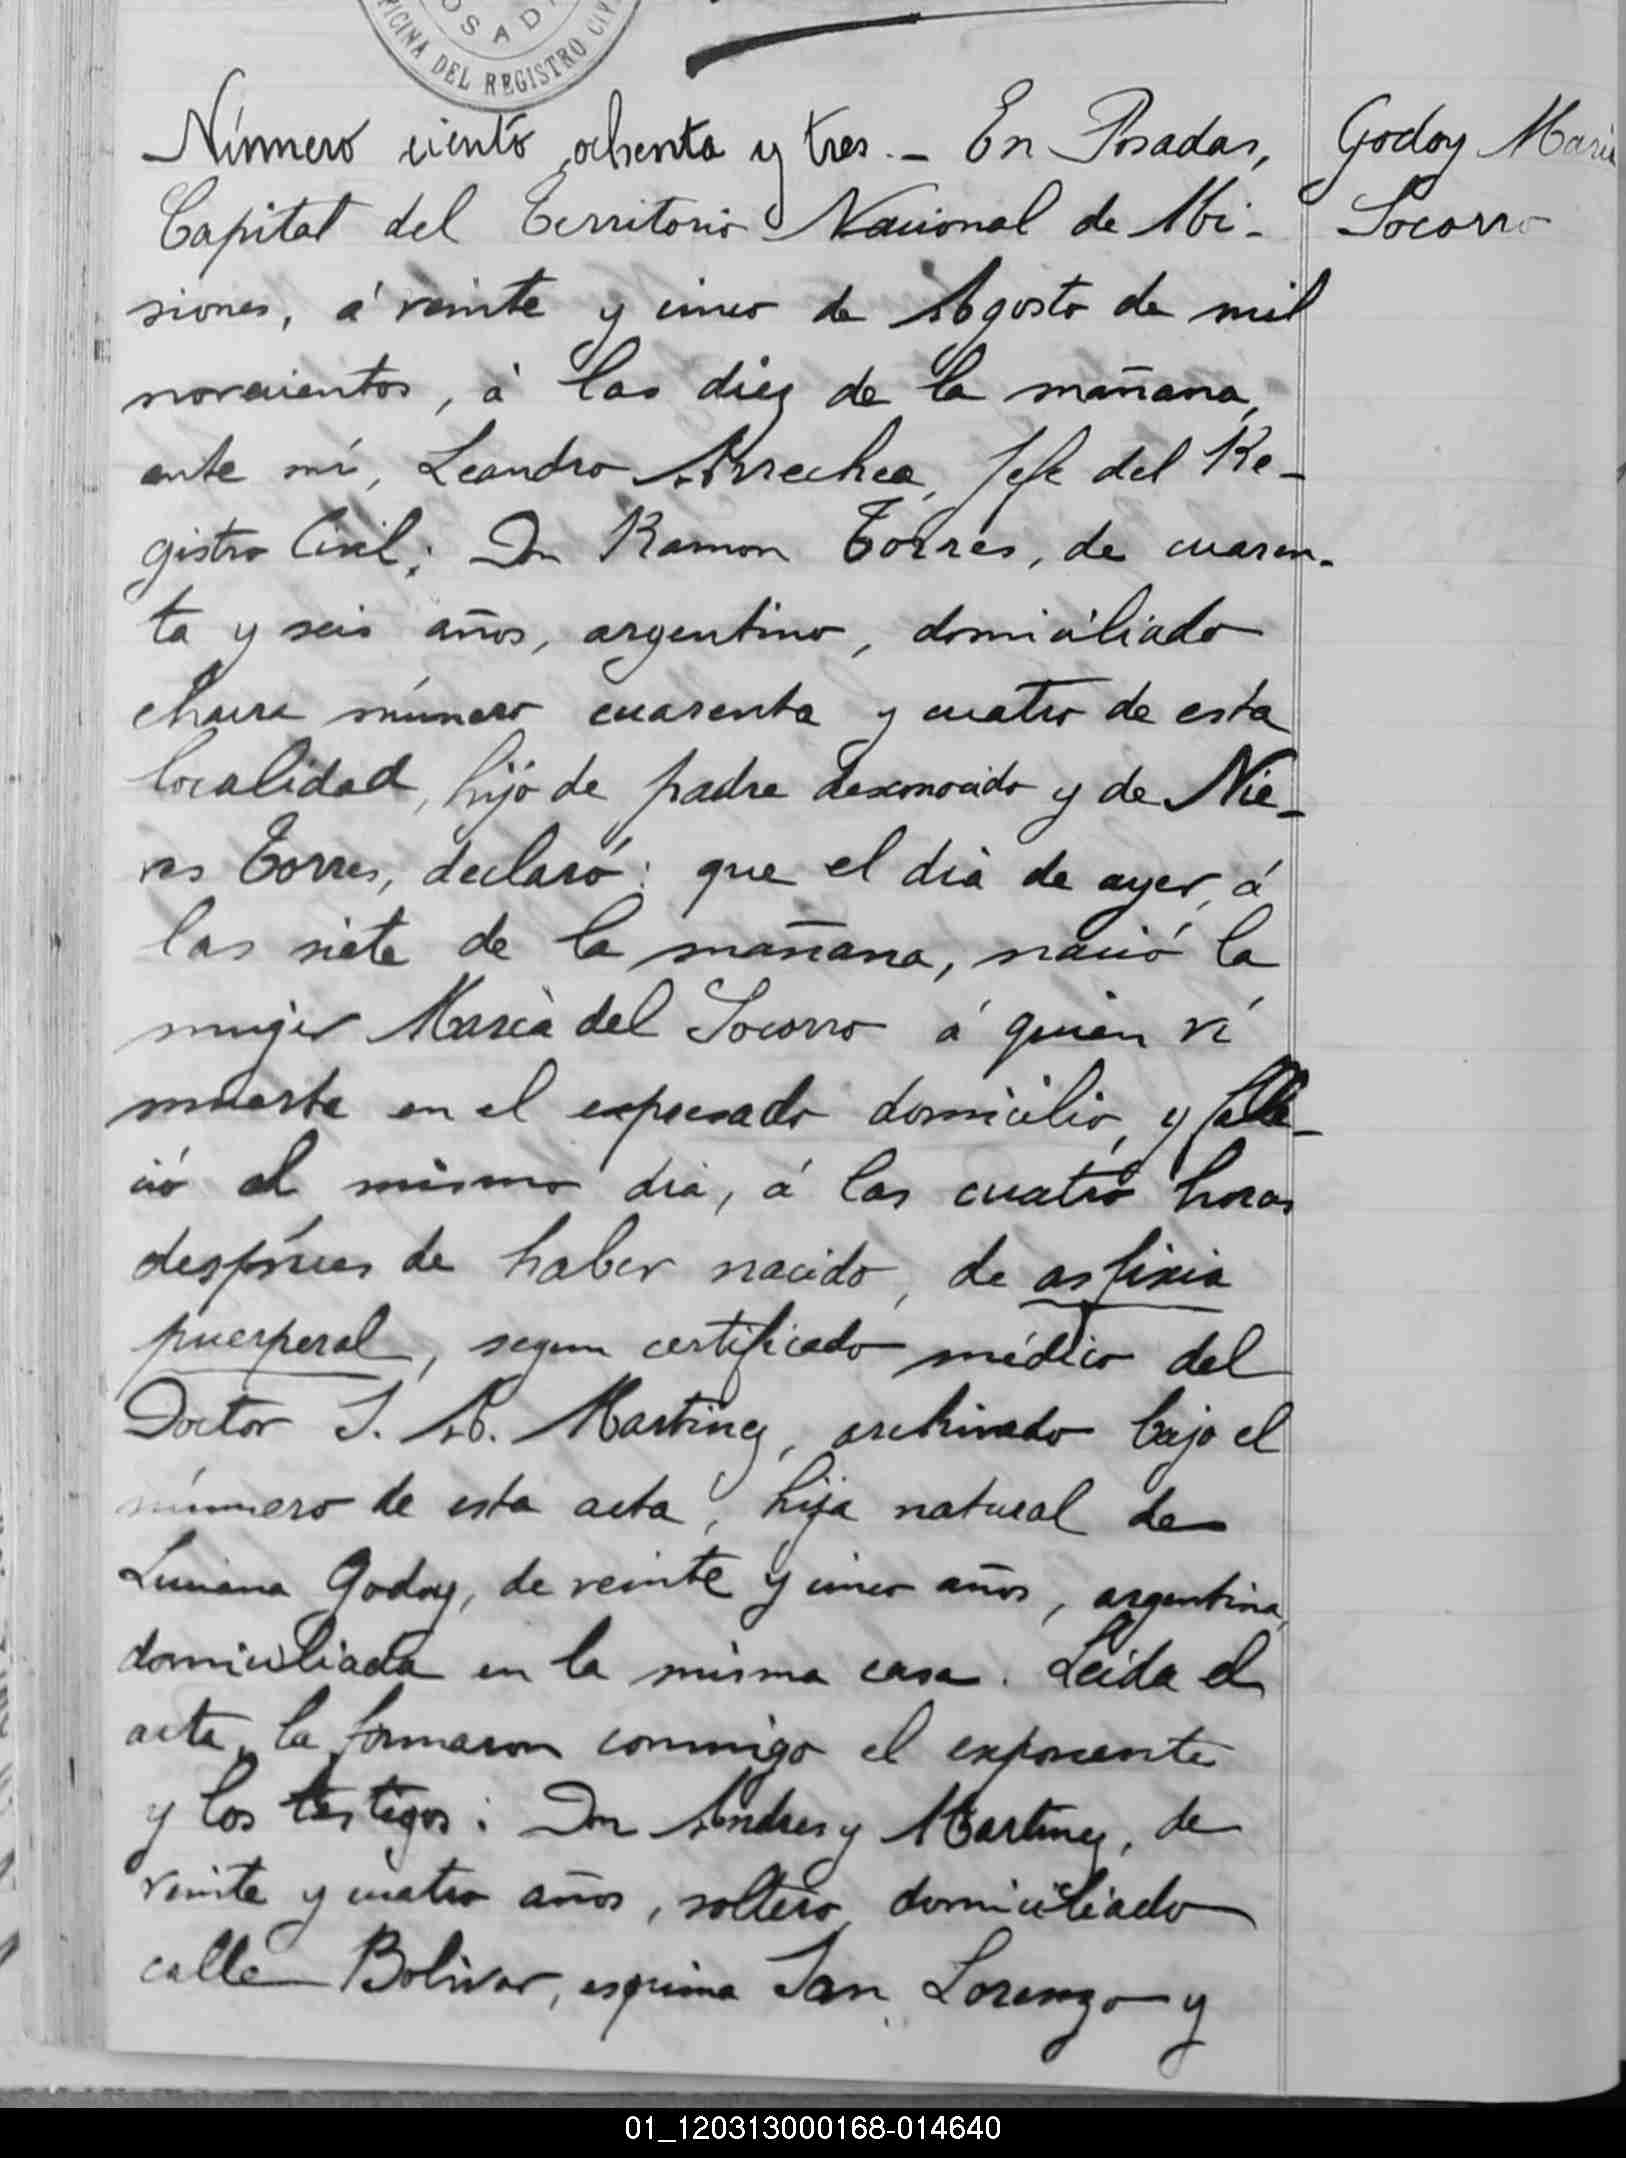 POSADAS
OFICINA DEL REGISTRO CIVIL
Número ciento ochenta y tres.- En Posadas,
Capital del Territorio Nacional de Mi-
siones, á veinte y cinco de Agosto de mil
novecientos, á las diez de la mañana,
ante mí, Leandro Arrechea, Jefe del Re-
gistro Civil; Dn Ramon Torres, de cuaren-
ta y seis años, argentino, domiciliado
chacra número cuarenta y cuatro de esta
localidad, hijo de padre desconocido y de Nie-
ves Torres, declaró: que el dia de ayer, á
las siete de la mañana, nació la
mujer María del Socorro á quien ví
muerta en el expresado domicilio, y falle-
ció el mismo dia, á las cuatro horas
despúes de haber nacido, de asfixia
puerperal, segun certificado médico del
Doctor S. A. Martinez, archivado bajo el
número de esta acta, hija natural de
Luciana Godoy, de veinte y cinco años, argentina,
domiciliada en la misma casa. Leida el
acta, la firmaron conmigo el exponente
y los testigos: Dn Andres y Martinez, de
veinte y cuatro años, soltero, domiciliado
calle Bolivar, esquina San Lorenzo y
Godoy Maria
Socorro
01_120313000168-014640